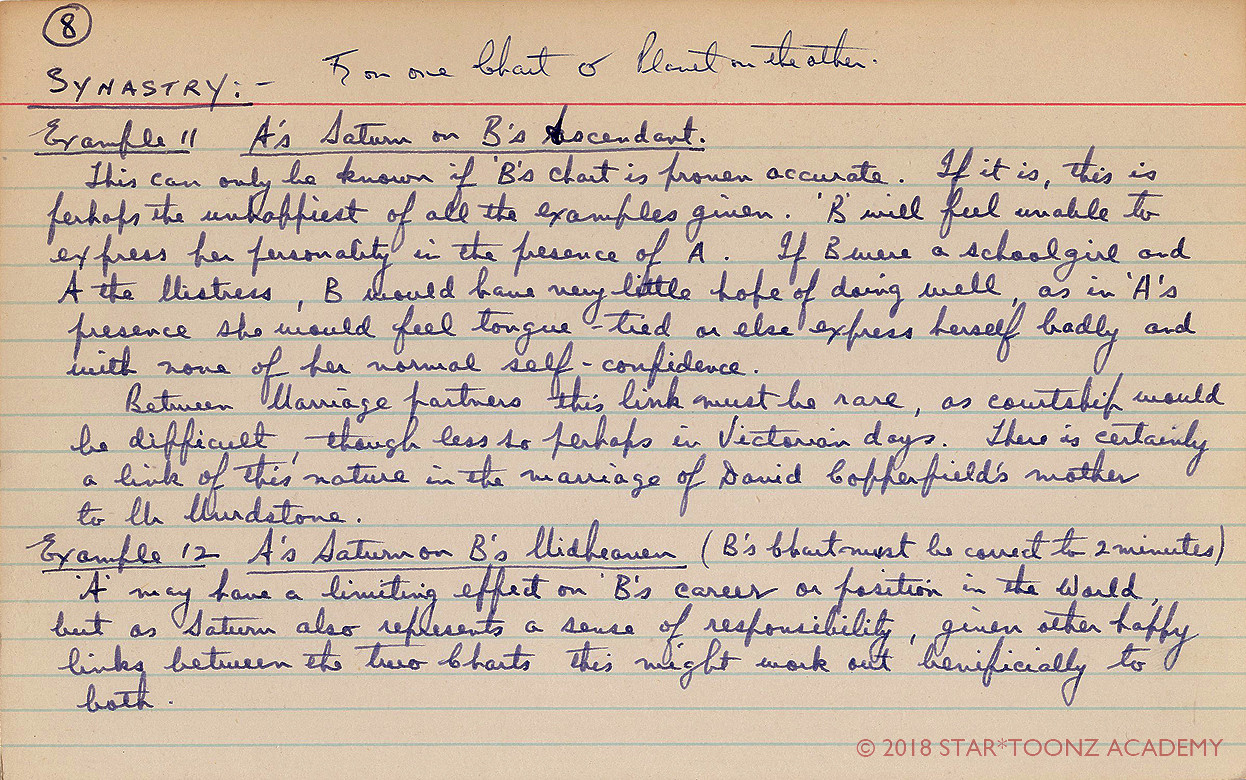 8
♄ on one Chart ☌ Planet on the other.
SYNASTRY:-
Example 11 A's Saturn on B's Ascendant.
This can only be known if 'B's chart is proven accurate. If it is, this is
perhaps the unhappiest of all the examples given. 'B' will feel unable to
express her personality in the presence of A. If B were a schoolgirl and
A the Mistress, B would have very little hope of doing well, as in 'A's
presence she would feel tongue-tied or else express herself badly and
with none of her normal self-confidence.
Between Marriage partners this link must be rare, as courtship would
be difficult, though less so perhaps in Victorian days. There is certainly
a link of this nature in the marriage of David Copperfield's mother
to Mr Murdstone.
Example 12 A's Saturn on B's Midheaven (B's Chart must be correct to 2 minutes)
'A' may have a limiting effect on 'B's career or position in the World,
but as Saturn also represents a sense of responsibility, given other happy
links between the two Charts this might work out benificially to
both.
© 2018 STAR*TOONZ ACADEMY